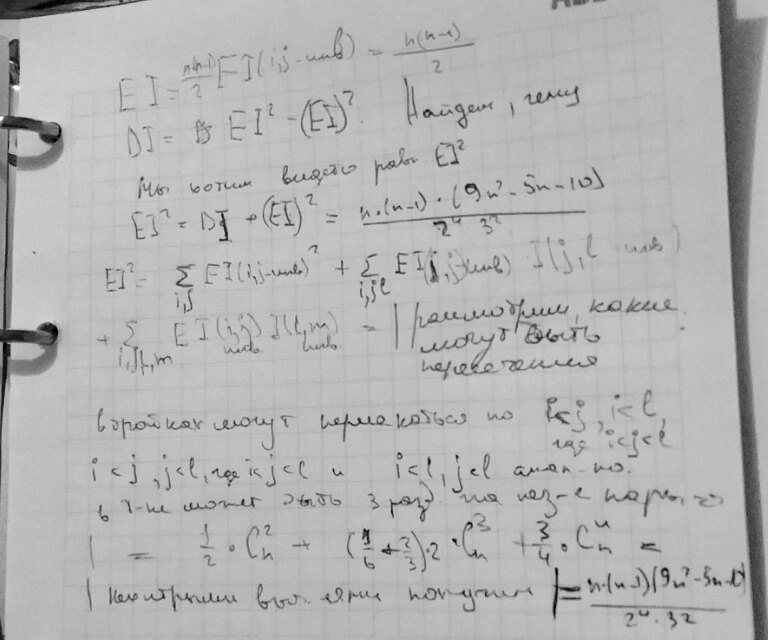 EI = n(n-1)/2 EI(i,j-инв) = n(n-1)/2
DI = EI² - (EI)². Найдем, чему
Мы хотим видеть равн EI²
EI² = DI + (EI)² = n·(n-1)·(9n²-5n-10) / 2⁴ 3²
EI² = Σ i,j EI(i,j-инв)² + Σ i,j,l EI(i,j-инв) I(j,l-инв)
+ Σ i,j,l,m EI(i,j) инв. I(l,m) инв. = | Рассмотрим, какие
могут быть
пересечения
могут пересекаться по i<j, i<l,
где i<j<l
i<j, j<l, где i<j<l и i<l, j<l анал-но.
в может быть 3 раз
| = 1/2 · C²ₙ + (1/6 + 2/3)·2 · C³ₙ + 3/4 · C⁴ₙ =
| получим | = n(n-1)(9n²-5n-10) / 2⁴·3²